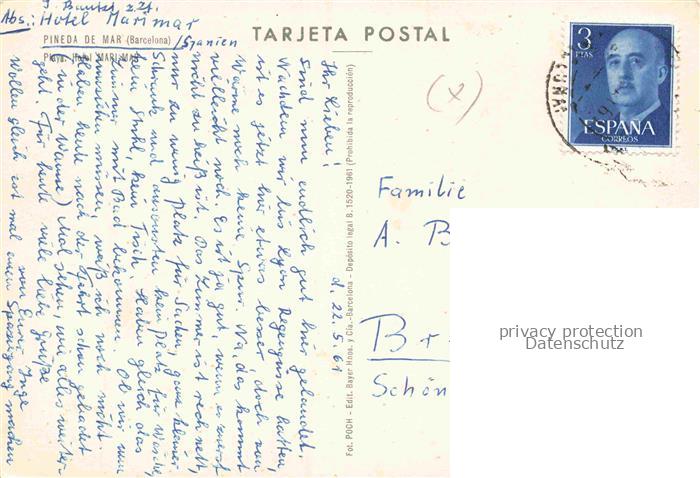 J. Bautet z. Zt.
Abs: Hotel Marimar
PINEDA DE MAR (Barcelona)
/Spanien
Playa. Hotel MARI-MAR
TARJETA POSTAL
3
PTAS
ESPAÑA
CORREOS
(x)
d. 22.5.61
Ihr Lieben!
Sind nun endlich gut hier gelandet.
Nachdem wir bis Lyon Regengüsse hatten,
ist es jetzt hier etwas besser, doch von
Wärme noch keine Spur. Na, das kommt
vielleicht noch. Es ist ja gut, wenn es zuerst
nicht zu heiß ist. Das Zimmer ist recht nett,
nur zu wenig Platz für Sachen, ganz kleiner
Schrank und ansonsten kein Platz für Wäsche,
kein Stuhl, kein Tisch. Haben gleich das
Zimmer mit Bad bekommen. Ob wir nun
müssen, weiß ich noch nicht.
Haben heute nach der Fahrt schon gebadet
(in der Wanne) Mal sehen, wie alles weiter-
geht. Für heute viele liebe Grüße
von Eurer Inge
Wollen gleich erst mal einen Spaziergang machen
Fot. POCH - Edit. Bayer Hnos. y Cía.-Barcelona - Depósito legal B. 1520-1961 (Prohibida la reproducción)
Familie
A. B
Br
Schön
privacy protection
Datenschutz